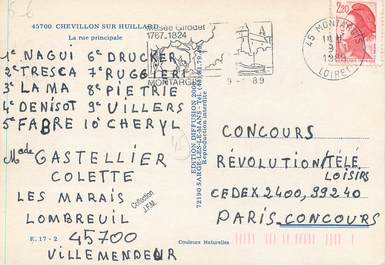 45700 CHEVILLON SUR HUILLARD
La rue principale
1e NAGUI 6e DRUCKER
2e TRESCA 7e RUGGIERI
3e LAMA 8e PIETRIE
4e DENISOT 9e VILLERS
5e FABRE 10e CHERYL
Made GASTELLIER
COLETTE
LES MARAIS
LOMBREUIL
45700
VILLEMENDEUR
E. 17 - 2
Collection
J.F.M.
Musée Girodet
1767-1824
MONTARGIS
9-89
EDITION DIFFUSION 2000
72190 SARGE-LES-LE-MANS - Tél.
Reproduction interdite
Couleurs Naturelles
45 MONTARGIS
LOIRET
2,20
CONCOURS
RÉVOLUTION/TÉLÉ
LOISIRS
CEDEX 2400, 99240
PARIS CONCOURS